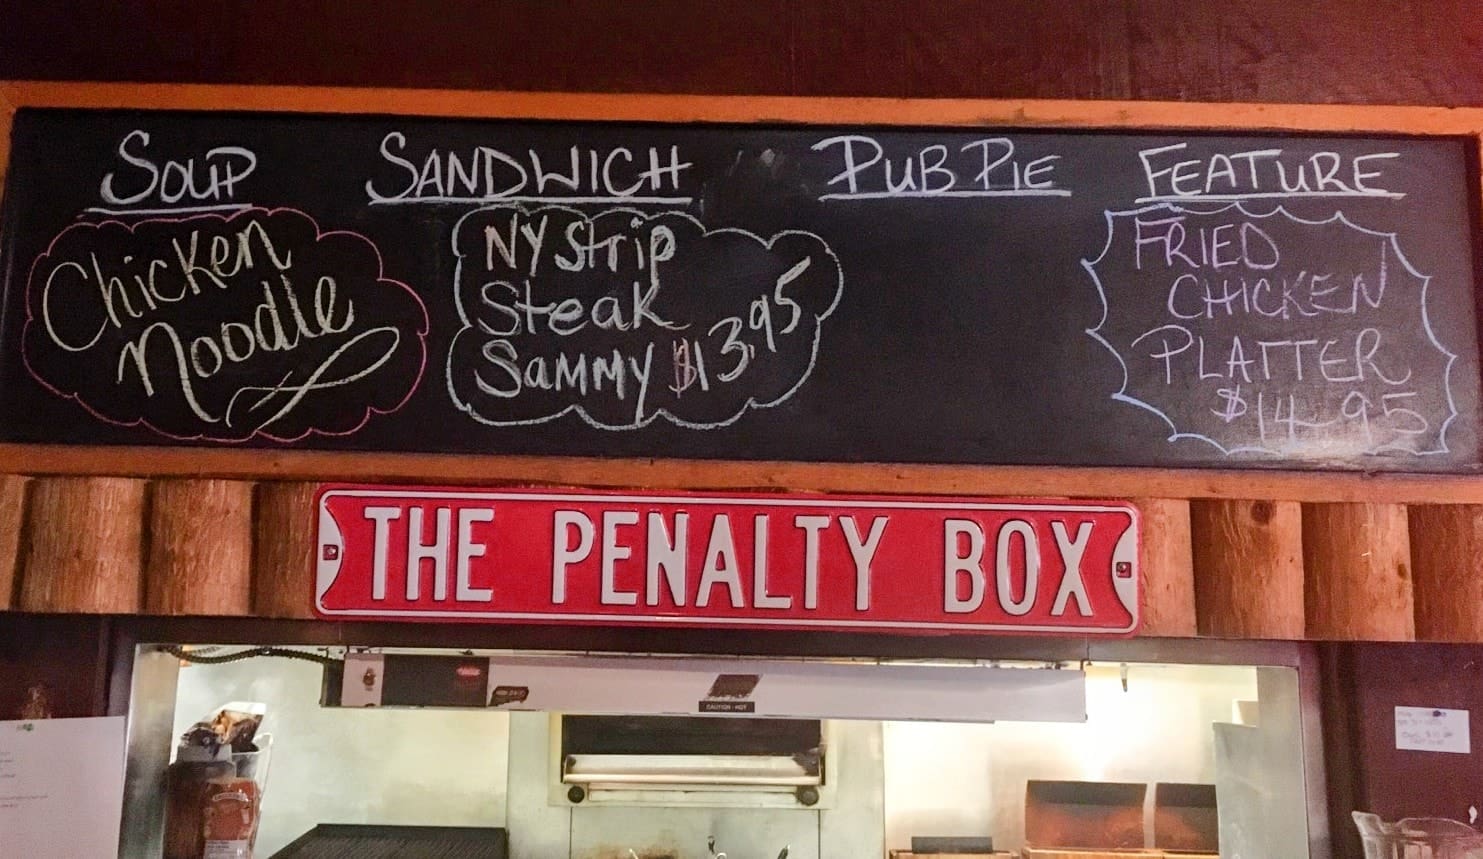 SOUP
Chicken
Noodle
SANDWICH
NY Strip
Steak
Sammy $13.95
PUB PIE
FEATURE
FRIED
CHICKEN
PLATTER
$14.95
THE PENALTY BOX
CAUTION - HOT